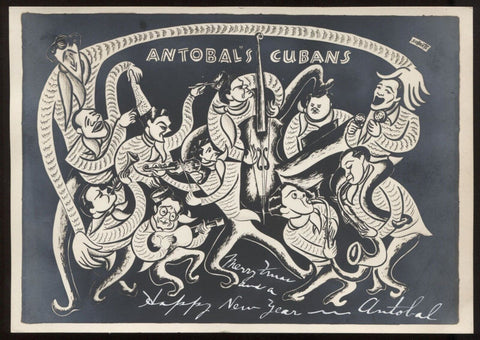 ANTOBAL'S CUBANS
Merry Xmas
and a
Happy New Year Antobal